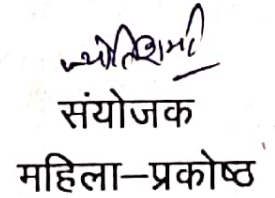 ज्योति शर्मा
संयोजक
महिला-प्रकोष्ठ